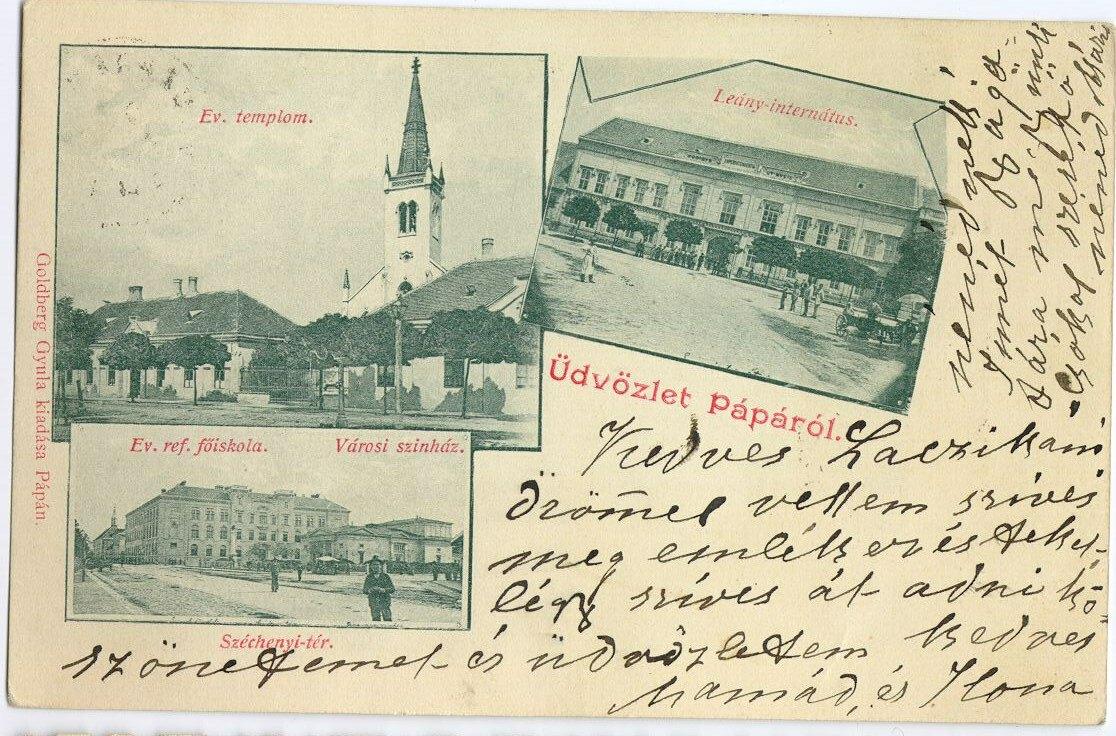 Ev. templom.
Leány-internátus.
Üdvözlet Pápáról.
Ev. ref. főiskola. Városi szinház.
Széchenyi-tér.
Goldberg Gyula kiadása Pápán.
Kedves Laczikám
örömel vettem szives
meg emlékezéstekel-
légy szives át adni kö-
szönetemet és üdvözletem kedves
Mamád, és Ilona
nénédnek
Ismét
sokat
nénéd Mári